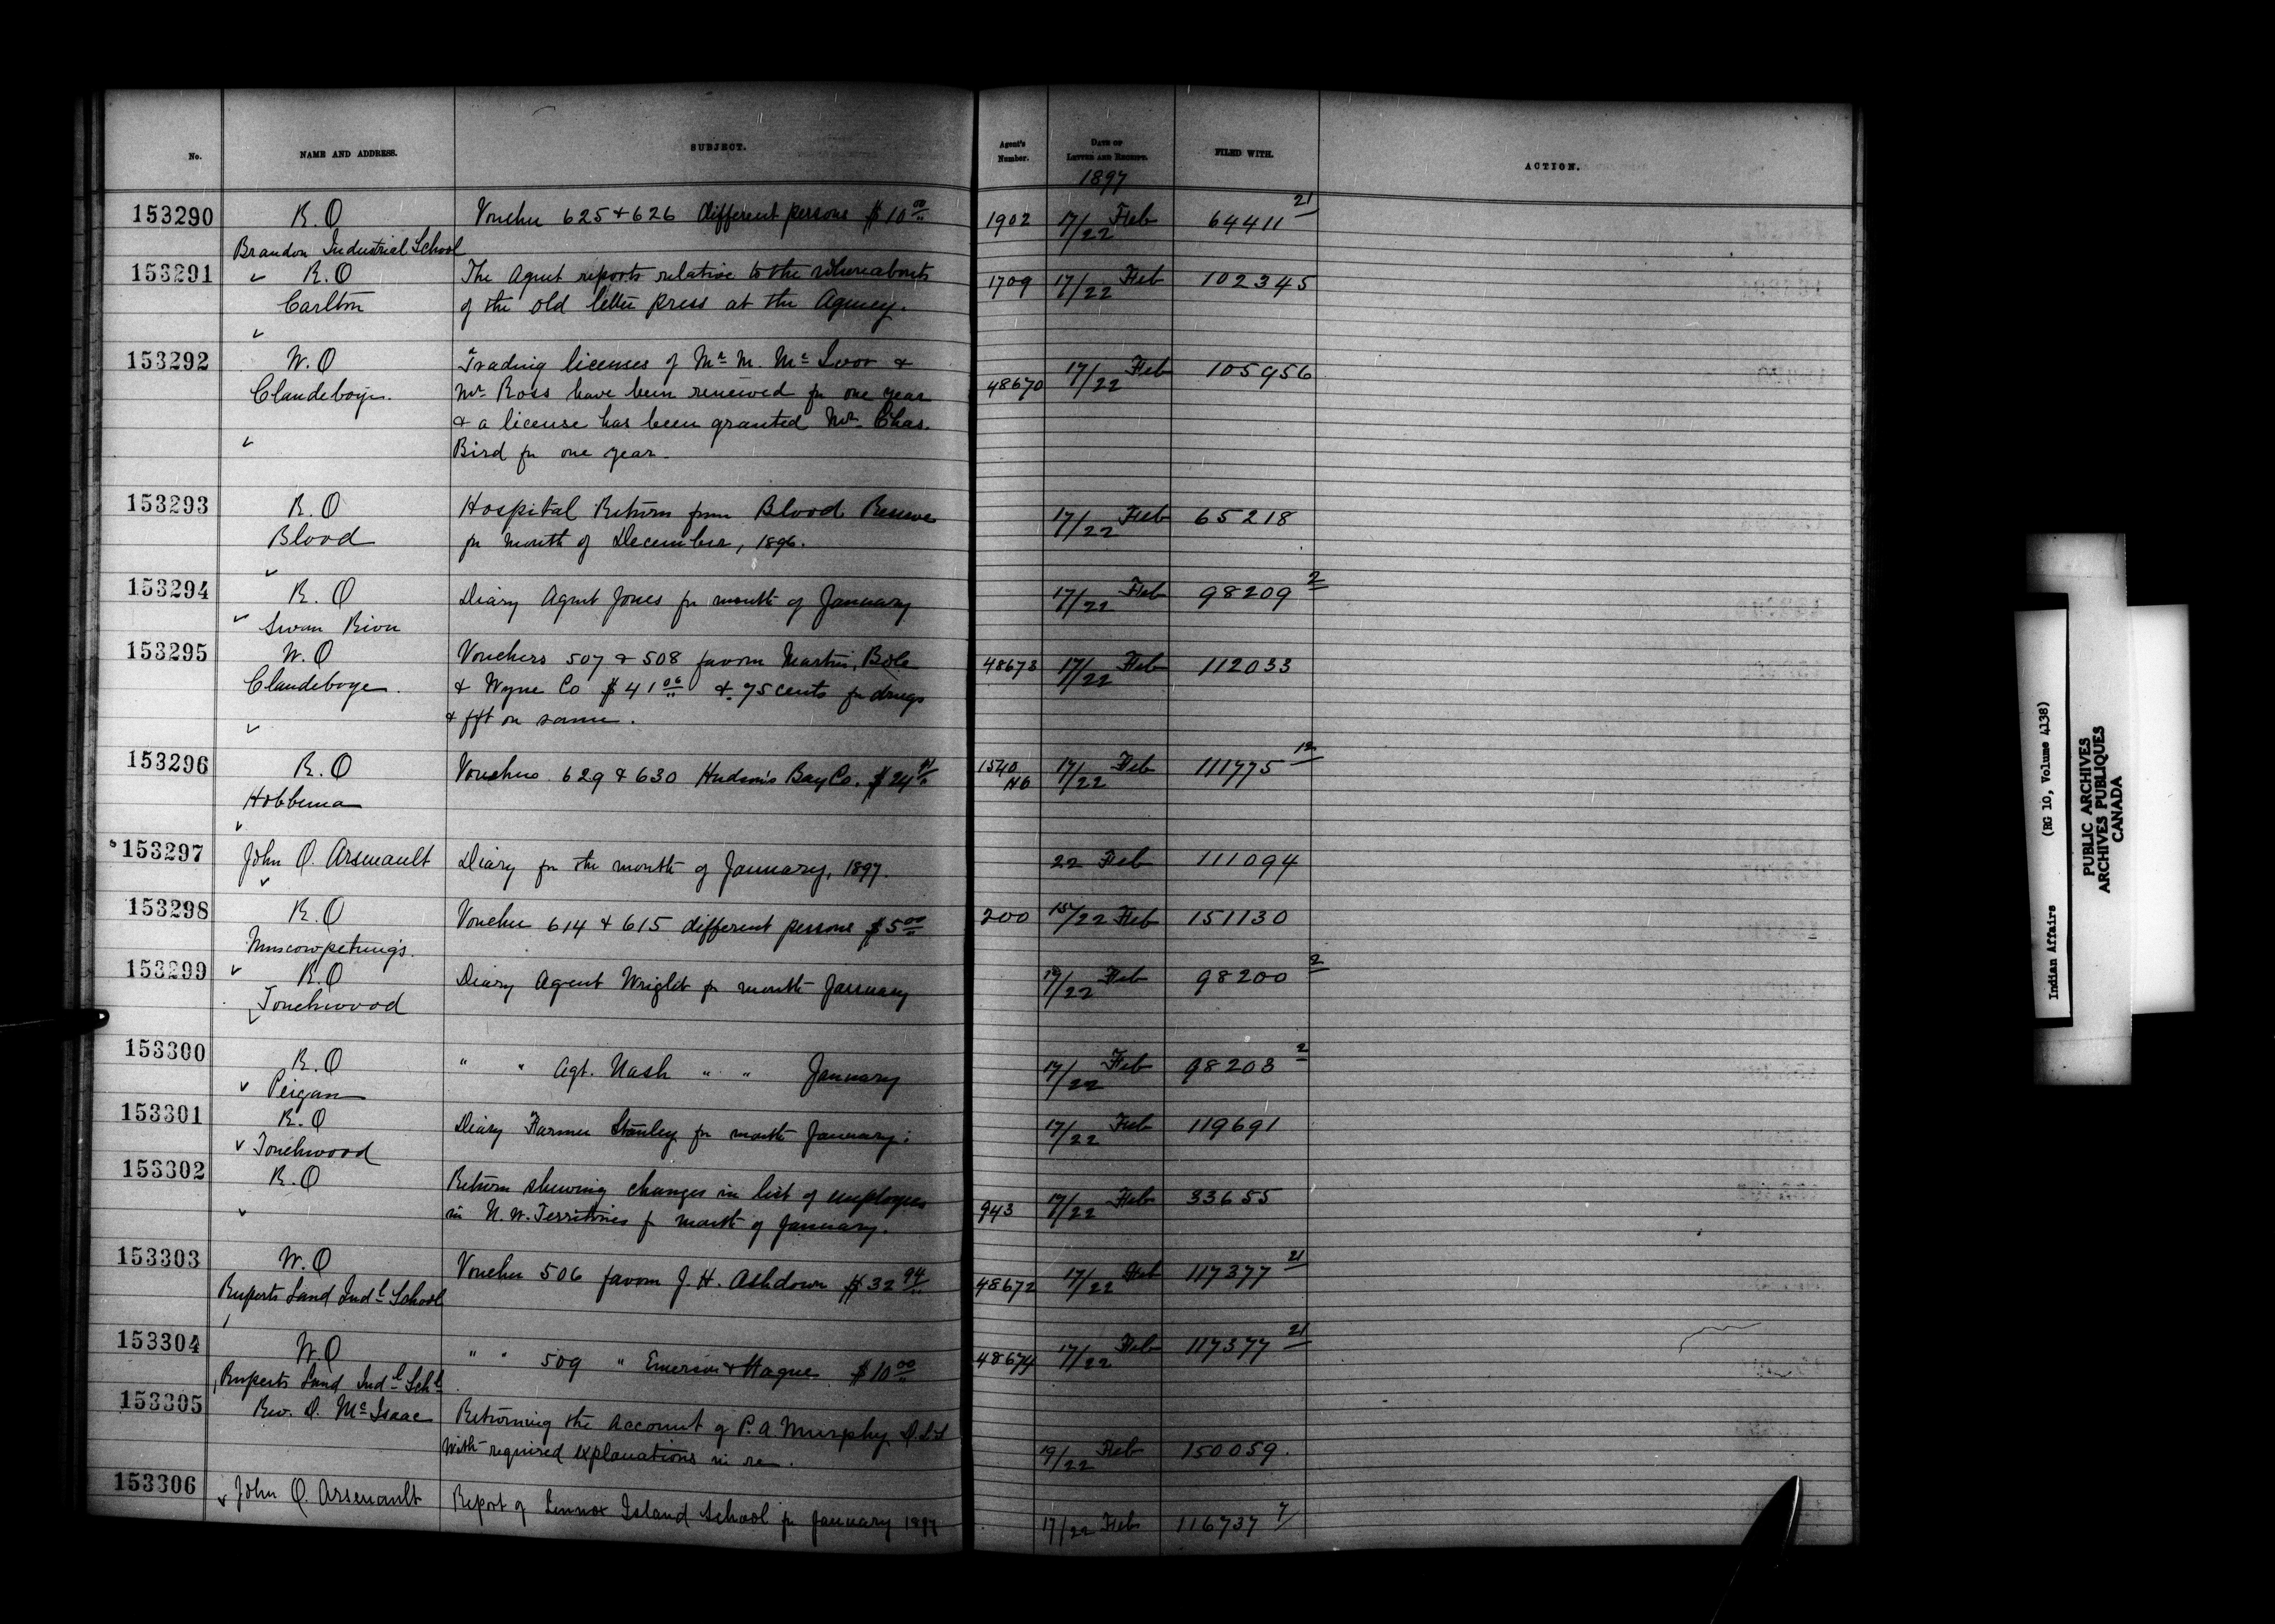 No. NAME AND ADDRESS. SUBJECT. Agent's Number. DATE OF LETTER AND RECEIPT. FILED WITH. ACTION.
1897
153290 R.O Voucher 625 & 626 different persons $10 00 1902 17/22 Feb 64411 21
Brandon Industrial School
153291 R.O The Agent reports relative to the whereabouts 1709 17/22 Feb 102345
Carlton of the old letter press at the Agency.
153292 W.O Trading licenses of Mr M. McIvor & 48670 17/22 Feb 105956
Clandeboye. Mr Ross have been renewed for one year
& a license has been granted Mr. Chas.
Bird for one year.
153293 R.O Hospital Return from Blood Reserve 17/22 Feb 65218
Blood for month of December, 1896.
153294 R.O Diary Agent Jones for month of January 17/22 Feb 98209 2
Swan River
153295 W.O Vouchers 507 & 508 favom Martin, Bole 48673 17/22 Feb 112033
Clandeboye. & Wyne Co $41 06 & 75 cents for drugs
& fft on same.
153296 R.O Vouchers 629 & 630 Hudson's Bay Co. $24 1540 HB 17/22 Feb 111775 12
Hobbema
153297 John O. Arsenault Diary for the month of January, 1897. 22 Feb 111094
153298 R.O Voucher 614 & 615 different persons $5 00 200 15/22 Feb 151130
Muscowpetung's.
153299 R.O Diary Agent Wright for month January 17/22 Feb 98200 2
Touchwood
153300 R.O " " Agt. Nash " " January 17/22 Feb 98203 2
Peigan
153301 R.O Diary Farmer Stanley for month January. 17/22 Feb 119691
Touchwood
153302 R.O Return shewing changes in list of employees 943 17/22 Feb 33655
in N.W. Territories for month of January.
153303 W.O Voucher 506 favom J. H. Ashdown $32 94 48672 17/22 Feb 117377 21
Ruperts Land Indl School
153304 W.O " " 509 " Emerson & Hague $10 00 48674 17/22 Feb 117377 21
Ruperts Land Indl Schl
153305 Rev. D. McIsaac Returning the Account of P.A Murphy D.L.S
with required explanations in re. 19/22 Feb 150059.
153306 John O. Arsenault Report of Lennox Island School for January 1897 17/22 Feb 116737 7
Indian Affairs (RG 10, Volume 4138)
PUBLIC ARCHIVES
ARCHIVES PUBLIQUES
CANADA